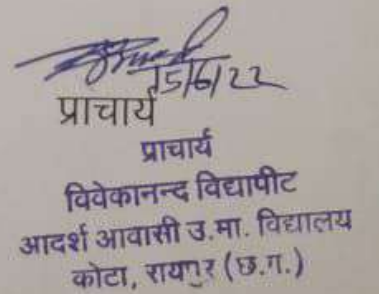 15/6/22
प्राचार्य
प्राचार्य
विवेकानन्द विद्यापीट
आदर्श आवासी उ.मा. विद्यालय
कोटा, रायपुर (छ.ग.)